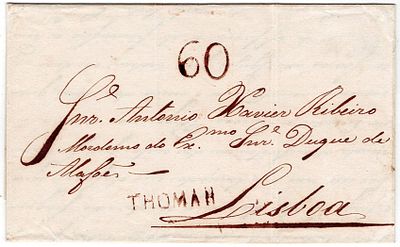 60
Snr. Antonio Xavier Ribeiro
Mordomo do Ex.mo Snr.e Duque de
Alafoẽs
THOMAR
Lisboa